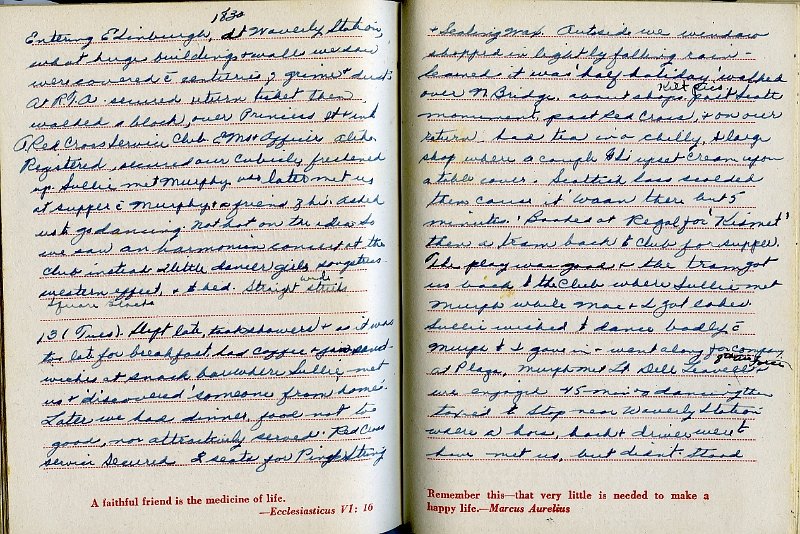 1830
Entering Edinburgh, at Waverly Station,
what huge buildings & walls we saw
were covered c centuries of grime & dust.
At R.T.O. secured return ticket then
walked a block over Princess St & into
Red Cross Service Club
Registered, secured our cubicles, freshened
up. Sullie met Murphy who later met us
at supper c Murphy & a friend of his. Asked
us to go dancing. Not hot on the idea so
we saw an harmonica concert at the
club instead & little dancer girls, songstress
western effect, & to bed. Straight streets
square blocks
131 (Tues). Slept late, took showers & as it was
too late for breakfast, had coffee & sand-
wiches at snack bar where Sullie met
us & "discovered" someone from home.
Later we had dinner, food not be
good, nor attractively served. Red Cross
service secured 2 seats for
A faithful friend is the medicine of life.
—Ecclesiasticus VI: 16
& Sealing Wax. Outside we window
shopped in lightly falling rain -
learned it was 'half holiday' walked
over N Bridge, about shops, past Scott
monument, past Red Cross, & on our
return had tea in a chilly, & large
shop where a couple upset cream upon
a table cover. Scottish lass scolded
them cause it 'waan there but 5
minutes.' Booked at Regal for 'Kismet'
then a tram back to Club for supper.
The play was good & the tram got
us back to the Club where Sullie met
Murph while Mac & I got caked
Sullie wished to dance badly c
Murph & I gave in & went along for company
at Plaza, Murph met Lt Dell
we enjoyed 45 min of dancing then
taxied to stop near Waverly Station
where a horse, hack & driver were to
have met us, but didn't. Stood
Remember this—that very little is needed to make a
happy life.—Marcus Aurelius